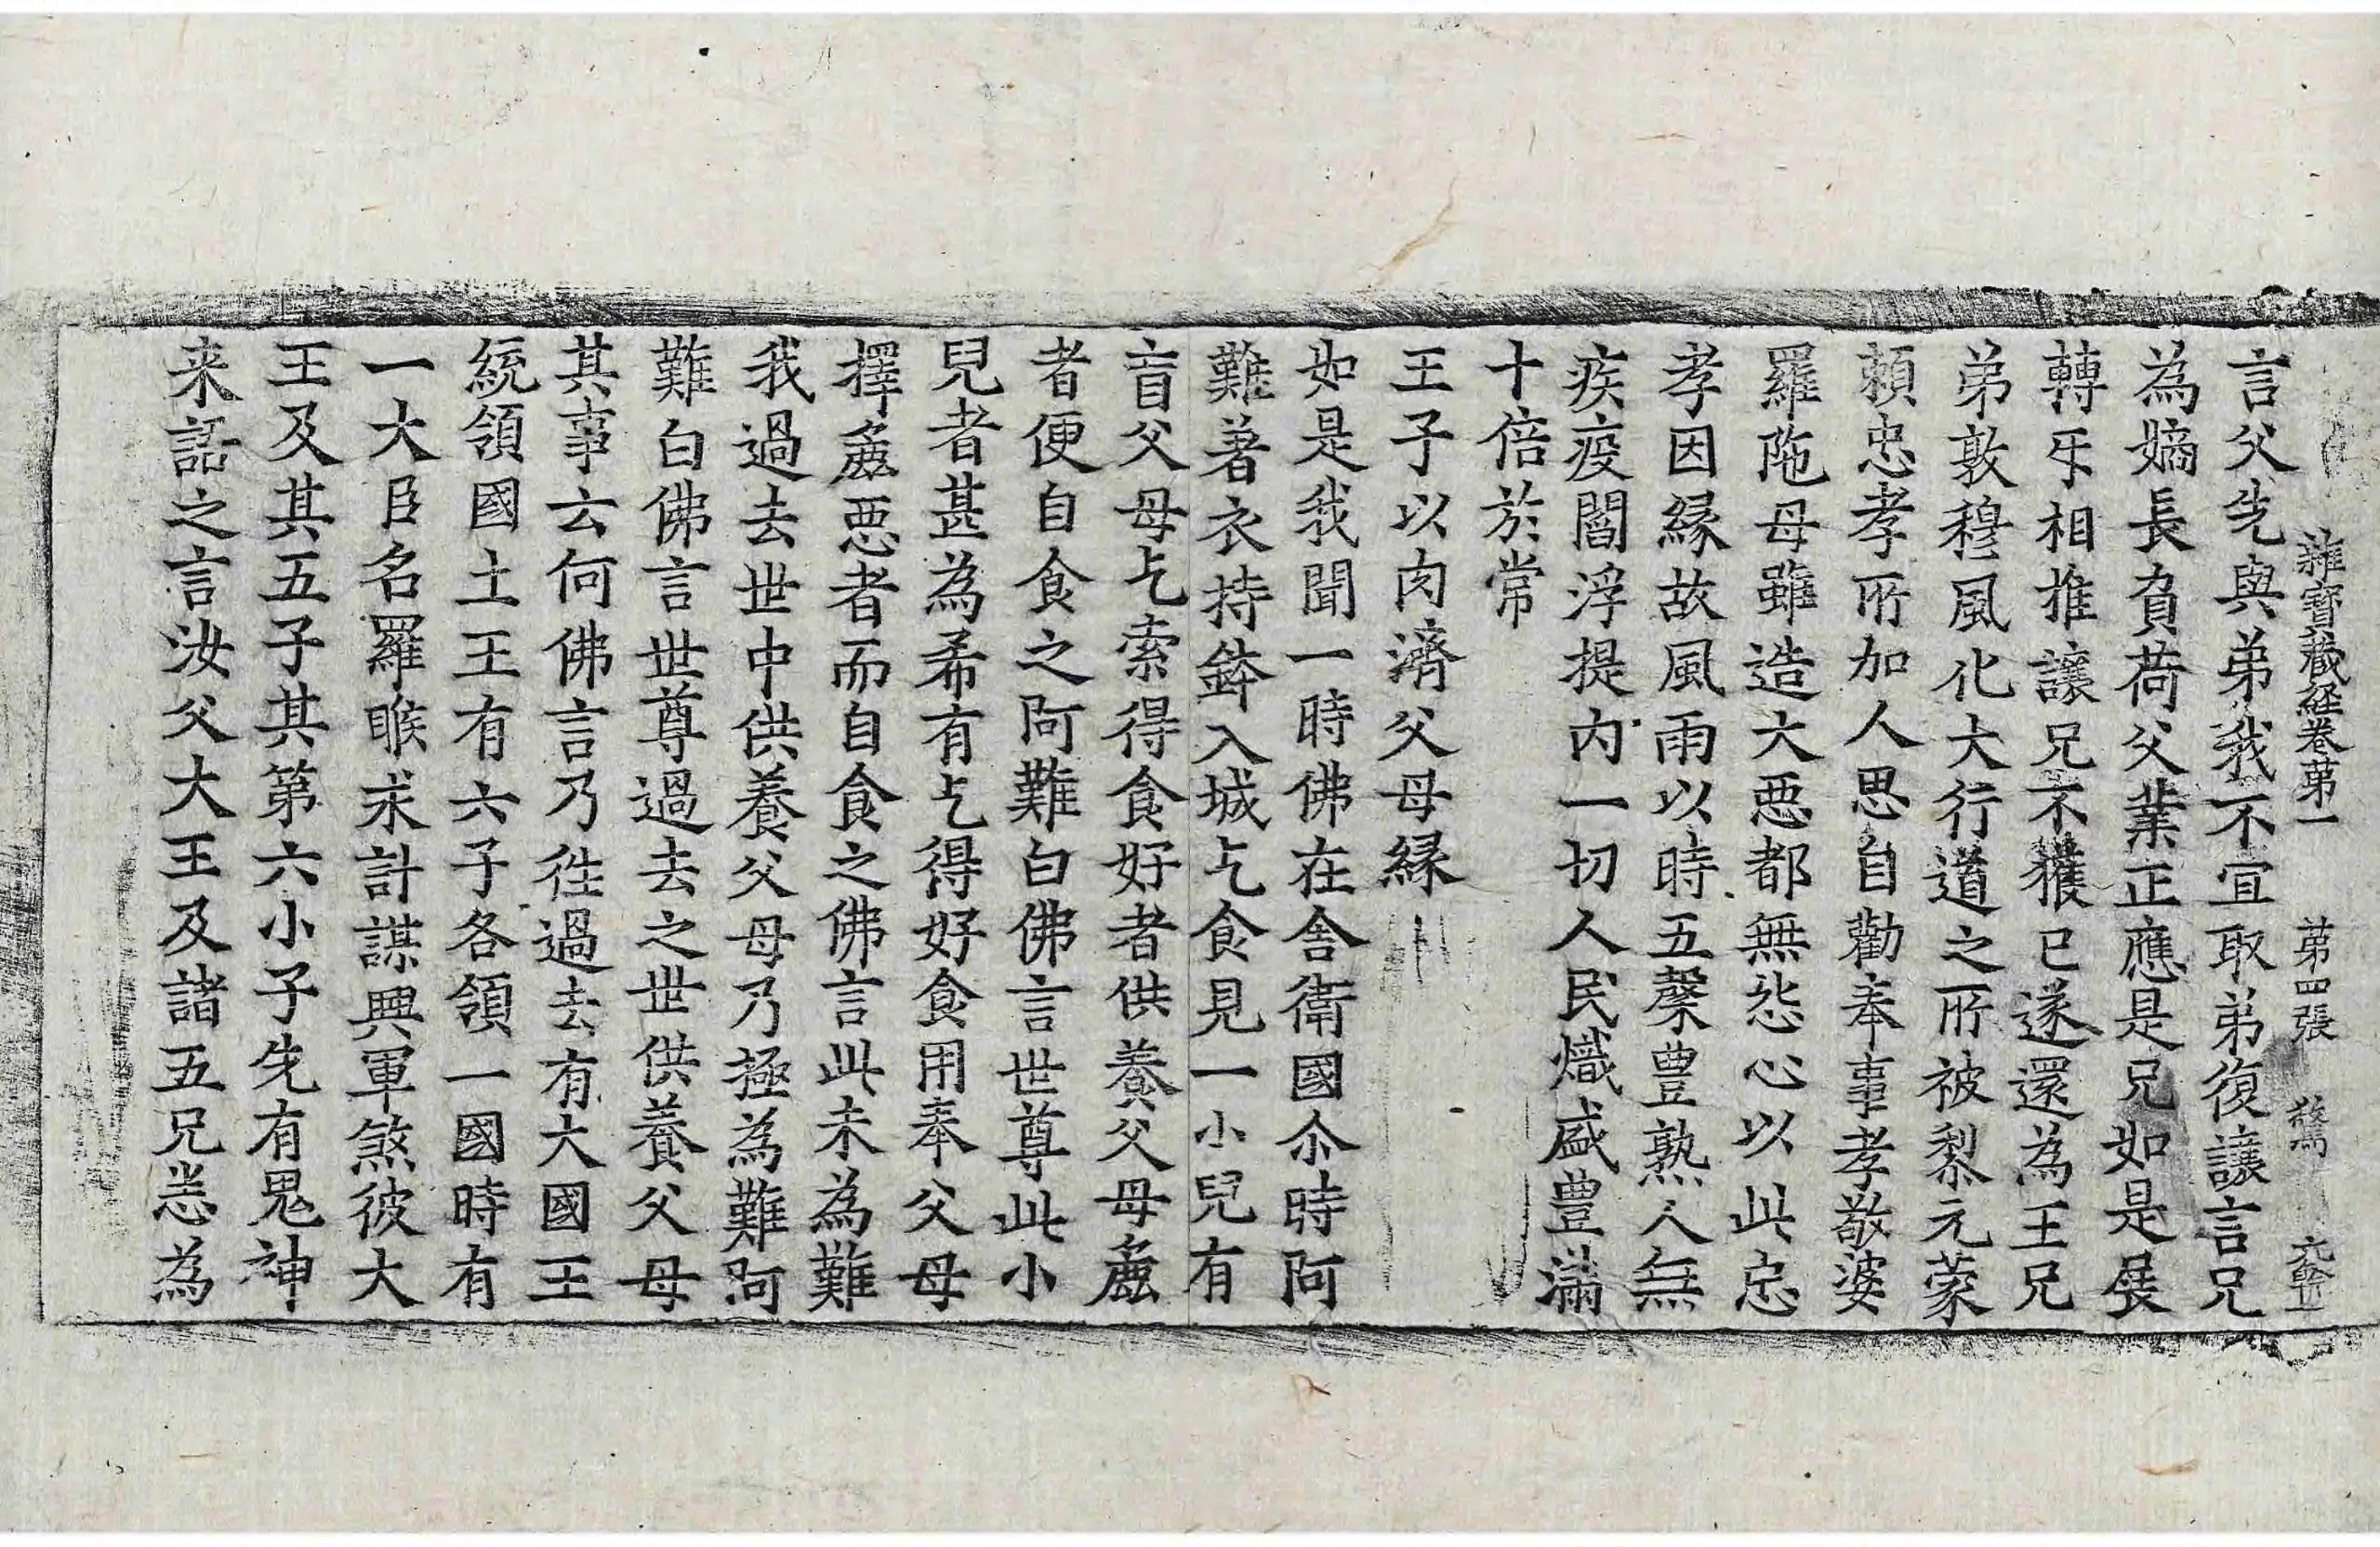 雜寶藏経卷第一 第四張 驚
言父先與弟我不宜取弟復讓言兄
為嫡長負荷父業正應是兄如是展
轉㸦相推讓兄不獲已遂還為王兄
弟敦穆風化大行道之所被黎元蒙
頼忠孝所加人思自勸奉事孝敬婆
羅陁母雖造大惡都無㤪心以此忠
孝因縁故風雨以時五糓豊熟人無
疾疫閻浮提内一切人民熾盛豊滿
十倍於常
王子以肉濟父母縁
如是我聞一時佛在舎衛國尒時阿
難著衣持鉢入城乞食見一小兒有
盲父母乞索得食好者供養父母麁
者便自食之阿難白佛言世尊此小
兒者甚為希有乞得好食用奉父母
擇麁惡者而自食之佛言此未為難
我過去世中供養父母乃極為難阿
難白佛言世尊過去之世供養父母
其事云何佛言乃徃過去有大國王
統領國土王有六子各領一國時有
一大臣名羅睺求計謀興軍煞彼大
王及其五子其第六小子先有鬼神
来語之言汝父大王及諸五兄悉為